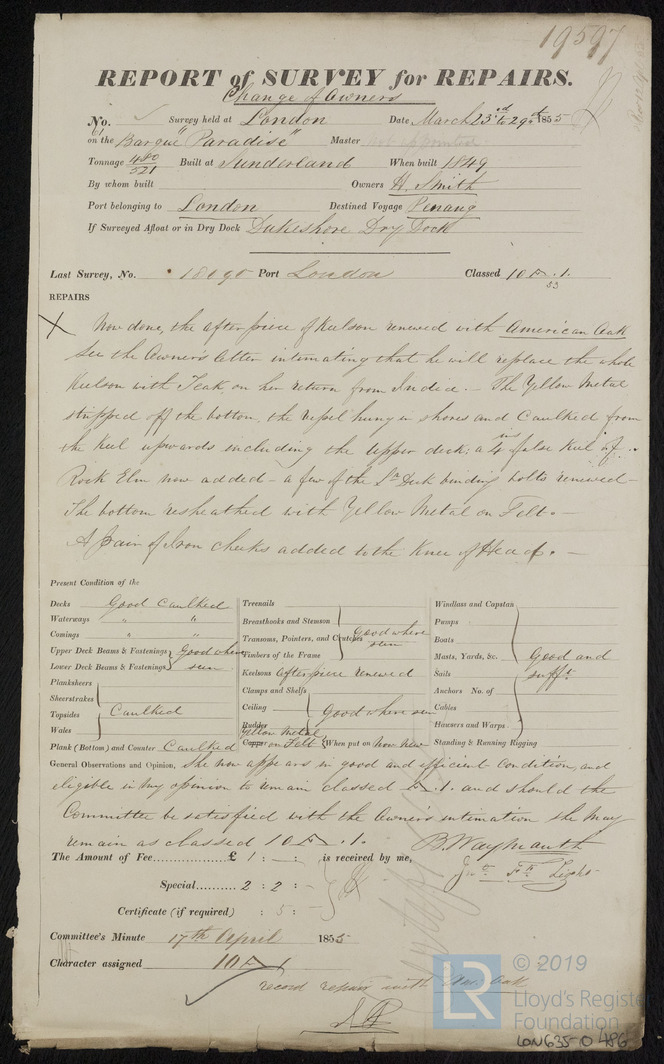 19597
REPORT of SURVEY for REPAIRS.
Change of Owners
No. Survey held at London Date, March 23rd to 29th 1855
on the Barque "Paradise" Master not appointed
Tonnage 480/521 Built at Sunderland When built 1849
By whom built Owners H. Smith
Port belonging to London Destined Voyage Penang
If Surveyed Afloat or in Dry Dock Dukeshore Dry Dock
Last Survey, No. 18090 Port London Classed 10 A. 1.
53
REPAIRS
X Now done, the after piece of Keelson renewed with American Oak
See the Owner's letter intimating that he will replace the whole
Keelson with Teak, on her return from India. — The Yellow Metal
stripped off the bottom, the vessel hung in shores and Caulked from
the Keel upwards including the Upper deck; a 4 ins false Keel of
Rock Elm now added — a few of the Dk binding bolts renewed —
The bottom resheathed with Yellow Metal on Felt. —
A pair of Iron cheeks added to the Knee of Head. —
Present Condition of the
Decks Good Caulked
Waterways " "
Comings " "
Upper Deck Beams & Fastenings } good where
Lower Deck Beams & Fastenings } seen
Planksheers
Sheerstrakes
Topsides } Caulked
Wales
Plank (Bottom) and Counter Caulked
Treenails
Breasthooks and Stemson
Transoms, Pointers, and Crutches } Good where seen
Timbers of the Frame
Keelsons after piece renewed
Clamps and Shelfs
Ceiling } Good where seen
Rudder
Yellow Metal
Copper on Felt { When put on Now New
Windlass and Capstan
Pumps
Boats
Masts, Yards, &c. } Good and
Sails } sufft
Anchors No. of
Cables
Hawsers and Warps
Standing & Running Rigging
General Observations and Opinion, She now appears in good and efficient condition, and
eligible in my opinion to remain classed A. 1. and should the
Committee be satisfied with the Owner's intimation she may
remain as classed 10 A. 1.
B. Waymouth
The Amount of Fee............ £ 1 : — : is received by me,
Special.......... 2 : 2 : -
Certificate (if required) : 5 : -
Committee's Minute 17th April 1855
Character assigned 10 A 1
record repair with Am Oak
© 2019
LR
Lloyd's Register
Foundation
LON635-0486